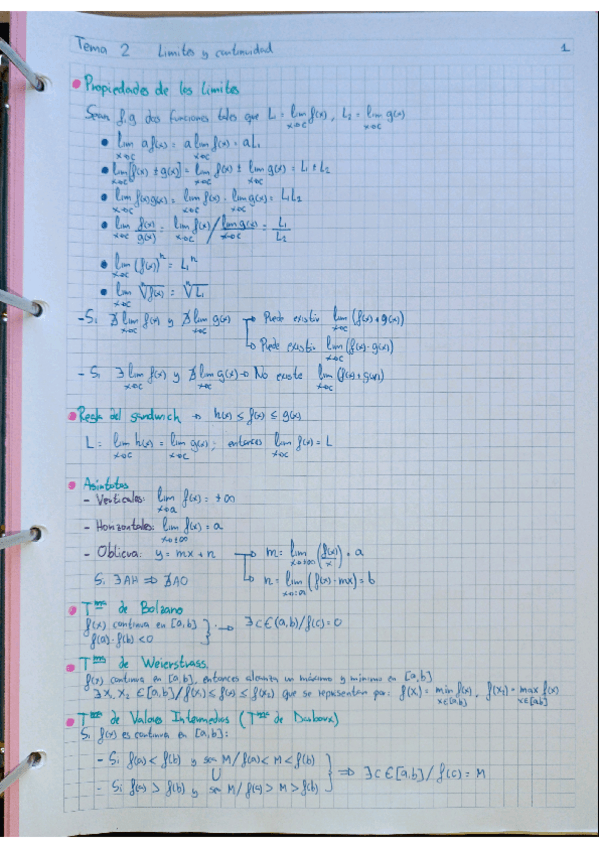 Tema 2 Limites y continuidad 1
Propiedades de los limites
Sean f,g dos funciones tales que L = lim x→c f(x), L₂ = lim x→c g(x)
lim x→c af(x) = a lim x→c f(x) = aL₁
lim x→c [f(x) ± g(x)] = lim x→c f(x) ± lim x→c g(x) = L₁ ± L₂
lim x→c f(x)g(x) = lim x→c f(x) · lim x→c g(x) = L₁L₂
lim x→c f(x)/g(x) = lim x→c f(x) / lim x→c g(x) = L₁/L₂
lim x→c (f(x))ⁿ = L₁ⁿ
lim x→c ⁿ√f(x) = ⁿ√L₁
- Si ∄ lim x→c f(x) y ∄ lim x→c g(x) → Puede existir lim x→c (f(x)+g(x))
→ Puede existir lim x→c (f(x)·g(x))
- Si ∃ lim x→c f(x) y ∄ lim x→c g(x) → No existe lim x→c (f(x)+g(x))
Regla del sandwich → h(x) ≤ f(x) ≤ g(x)
L = lim x→c h(x) = lim x→c g(x); entonces lim x→c f(x) = L
Asintotas
- Verticales: lim x→a f(x) = ±∞
- Horizontales: lim x→±∞ f(x) = a
- Oblicua: y = mx + n → m = lim x→±∞ (f(x)/x) = a
Si ∃AH ⇒ ∄AO → n = lim x→±∞ (f(x) - mx) = b
Tᵐᵃ de Bolzano
f(x) continua en [a,b]
f(a)·f(b) < 0 } → ∃ c ∈ (a,b) / f(c) = 0
Tᵐᵃ de Weierstrass
f(x) continua en [a,b], entonces alcanza un máximo y minimo en [a,b]
∃ x₁, x₂ ∈ [a,b] / f(x₁) ≤ f(x) ≤ f(x₂) que se representan por: f(x₁) = min x∈[a,b] f(x), f(x₂) = max x∈[a,b] f(x)
Tᵐᵃ de Valores Intermedios (Tᵐᵃ de Darboux)
Si f(x) es continua en [a,b]:
- Si f(a) < f(b) y sea M / f(a) < M < f(b)
U } ⇒ ∃ c ∈ [a,b] / f(c) = M
- Si f(a) > f(b) y sea M / f(a) > M > f(b)